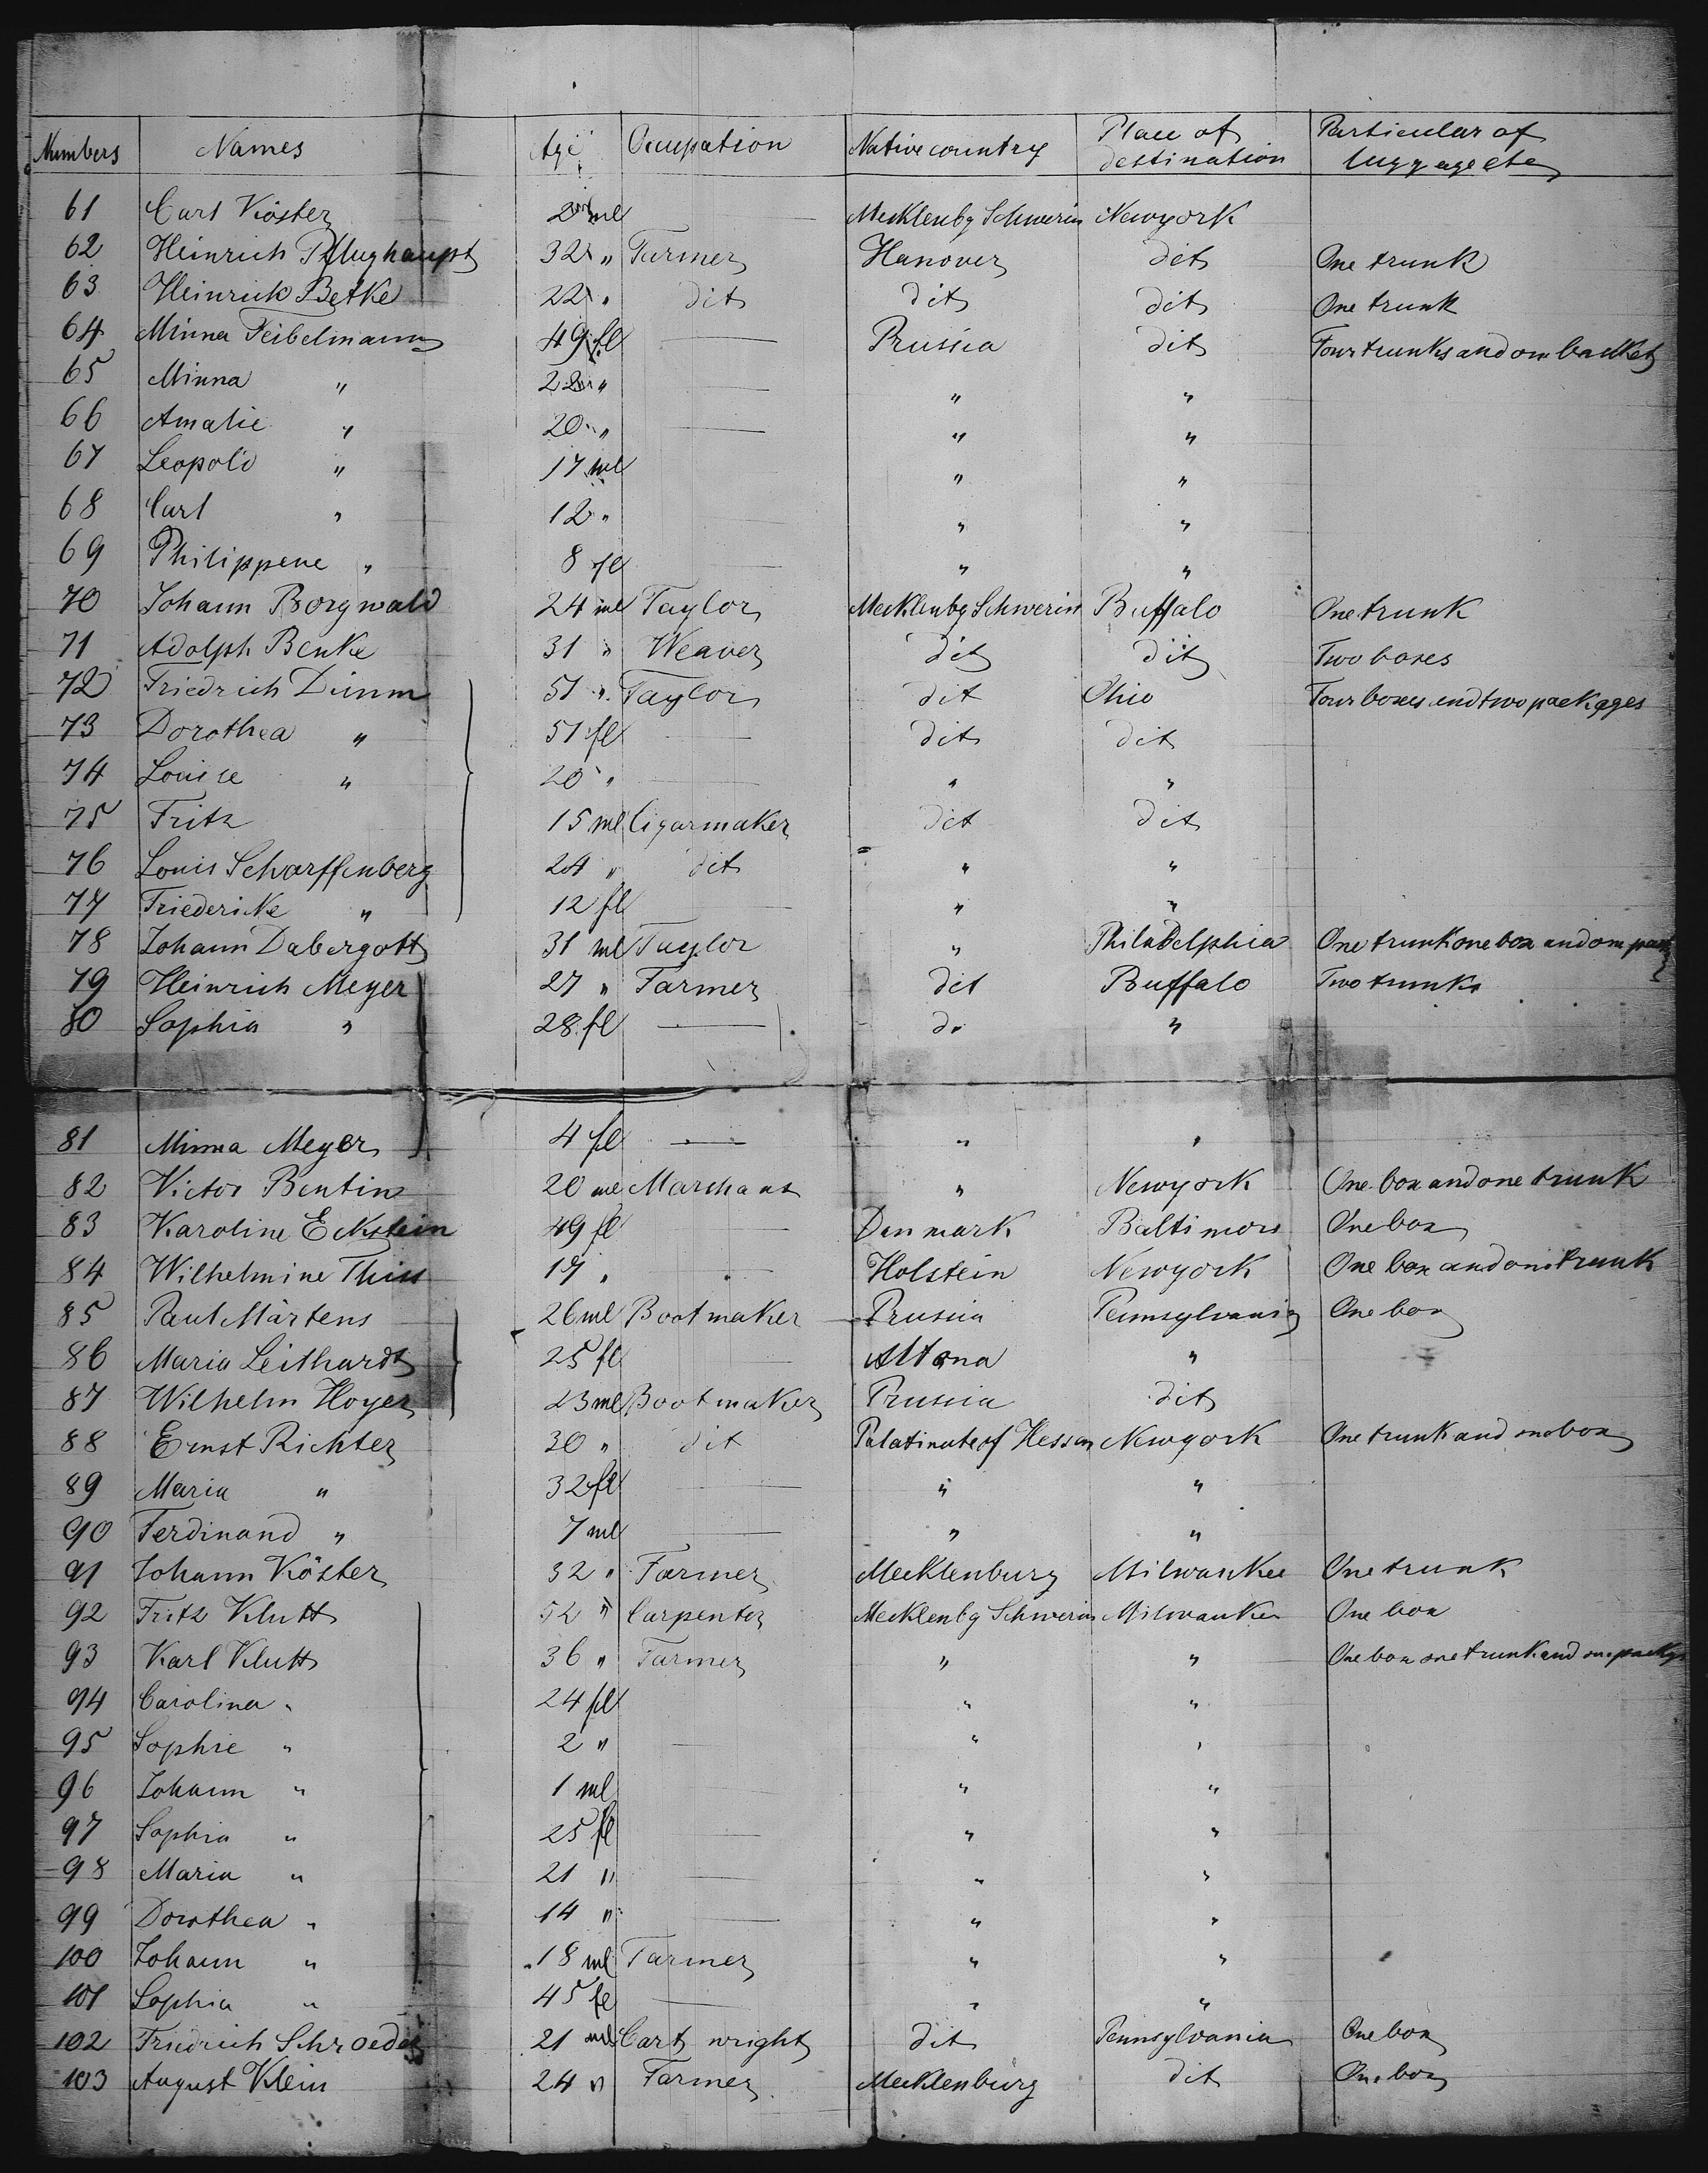 Numbers Names Age Occupation Native country Place of destination Particular of luggage etc
61 Carl Köster ml Mecklenbg Schwerin Newyork
62 Heinrich Pflughaupt 32 " Farmer Hanover dit One trunk
63 Heinrich Betke 22 " dit dit dit One trunk
64 Minna Feibelmann 49 fl — Prussia dit Four trunks and one basket
65 Minna " 22 " — " "
66 Amalie " 20 " — " "
67 Leopold " 17 ml " "
68 Carl " 12 " — " "
69 Philippene " 8 fl — " "
70 Johann Borgwald 24 ml Taylor Mecklenbg Schwerin Buffalo One trunk
71 Adolph Benke 31 " Weaver dit dit Two boxes
72 Friedrich Dimm 51 " Taylor dit Ohio Four boxes and two packages
73 Dorothea " 51 fl — dit dit
74 Louise " 20 " — " "
75 Fritz 15 ml Cigarmaker dit dit
76 Louis Scharffenberg 24 " dit " "
77 Friedericke " 12 fl — " "
78 Johann Dabergott 31 ml Taylor " Philadelphia One trunk one box and one
79 Heinrich Meyer 27 " Farmer dit Buffalo Two trunks
80 Sophia " 28 fl — do "
81 Minna Meyer 4 fl — " "
82 Victor Bentin 20 ml " Newyork One box and one trunk
83 Karoline Eckstein 49 fl — Denmark Baltimore One box
84 Wilhelmine Thiss 17 " — Holstein Newyork One box and one trunk
85 Paul Märtens 26 ml Bootmaker Prussia Pennsylvania One box
86 Maria Leithardt 25 fl — Altona "
87 Wilhelm Hoyer 23 ml Bootmaker Prussia dit
88 Ernst Richter 30 " dit Palatinate of Hessen Newyork One trunk and one box
89 Maria " 32 fl — " "
90 Ferdinand " 7 ml — " "
91 Johann Köster 32 " Farmer Mecklenburg Milwaukee One trunk
92 Fritz Klutt 52 " Carpenter Mecklenbg Schwerin Milwaukee One box
93 Karl Klutt 36 " Farmer " " One box one trunk and one
94 Carolina " 24 fl " "
95 Sophie " 2 " — " "
96 Johann " 1 ml " "
97 Sophia " 25 fl — " "
98 Maria " 21 " — " "
99 Dorothea " 14 " — " "
100 Johann " 18 ml Farmer " "
101 Sophia " 45 fl — " "
102 Friedrich Schroeder 21 ml Cart wright dit Pennsylvania One box
103 August Klein 24 " Farmer Mecklenburg dit One box